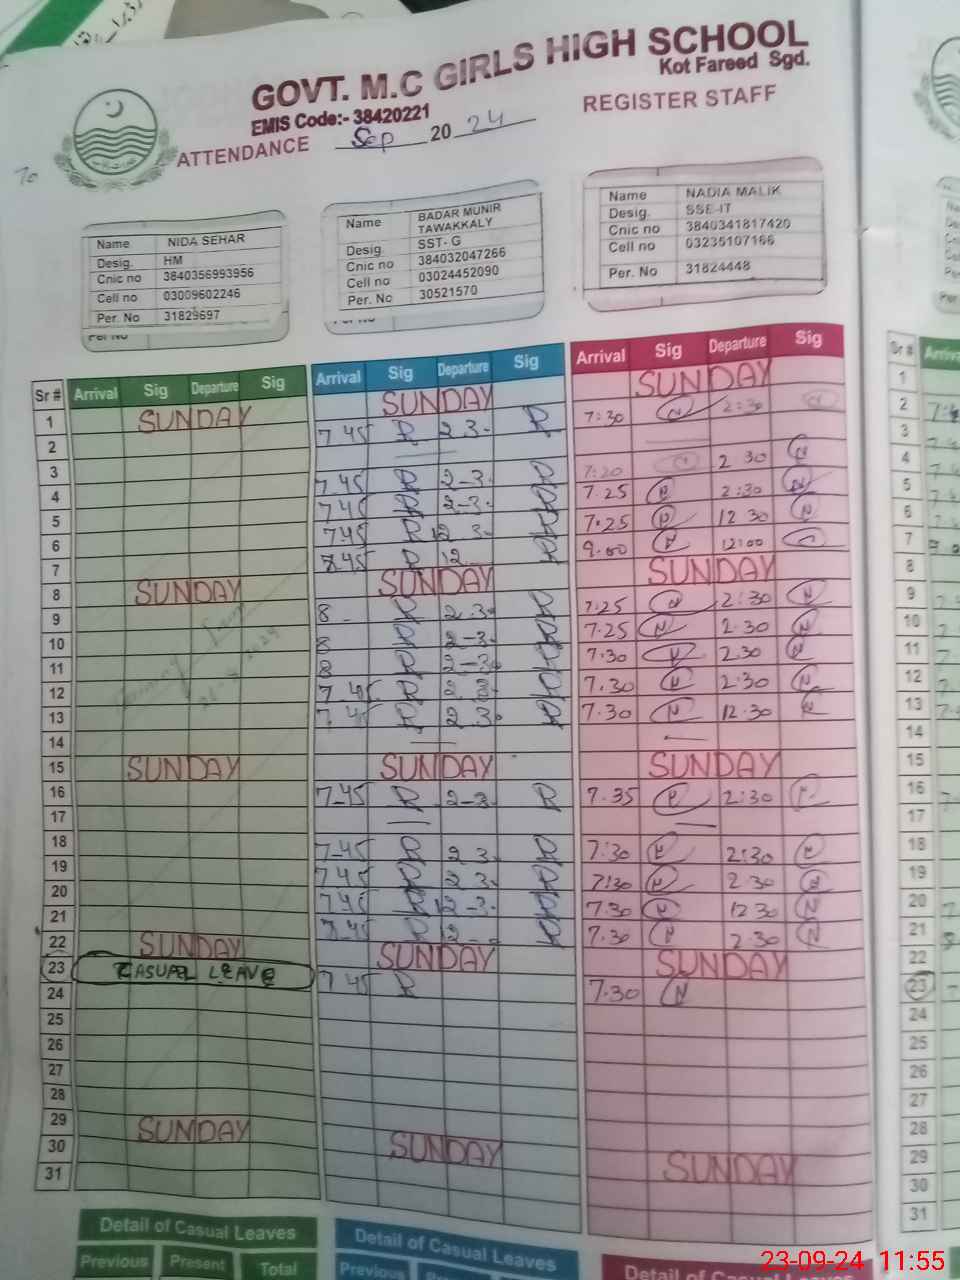 GOVT. M.C GIRLS HIGH SCHOOL
Kot Fareed Sgd.
EMIS Code:- 38420221
ATTENDANCE Sep 2024 REGISTER STAFF
Name NIDA SEHAR
Desig. HM
Cnic no 3840356993956
Cell no 03009602246
Per. No 31829697
Name BADAR MUNIR TAWAKKALY
Desig. SST- G
Cnic no 384032047266
Cell no 03024452090
Per. No 30521570
Name NADIA MALIK
Desig. SSE-IT
Cnic no 3840341817420
Cell no 03235107166
Per. No 31824448
Sr # Arrival Sig Departure Sig Arrival Sig Departure Sig Arrival Sig Departure Sig
1 SUNDAY SUNDAY SUNDAY
2 7 45 R 2 3- R 7:30 N 2:30 N
3
4 7 45 R 2-3- R 7:20 2 30 N
5 7 45 R 2-3- R 7.25 N 2:30 N
6 7 45 R 12 3- R 7.25 N 12 30 N
7 7.45 R 12 R 12:00
8 SUNDAY SUNDAY SUNDAY
9 8 - R 2.3- R 7:25 N 2:30 N
10 8 R 2-3- R 7.25 N 2.30 N
11 8 R 2-30 R 7.30 N 2.30 N
12 7 45 R 2 3 R 7.30 N 2:30 N
13 7 45 R 2 30 R 7.30 N 12.30 N
14
15 SUNDAY SUNDAY SUNDAY
16 7-45 R R 7.35 N 2:30 N
17
18 7-45 R 2 3- R 7:30 N 2:30 N
19 7 45 R 2 3- R 7:30 N 2.30 N
20 7 45 R 12-3- R 7.30 N 12 30 N
21 7-45 R 12 - R 7.30 N 2.30 N
22 SUNDAY SUNDAY SUNDAY
23 CASUAL LEAVE 7 45 R 7.30 N
24
25
26
27
28
29 SUNDAY SUNDAY SUNDAY
30
31
Detail of Casual Leaves Detail of Casual Leaves Detail of Casual
Previous Present Total Previous
Sr #
1
2
3
4
5
6
7
8
9
10
11
12
13
14
15
16
17
18
19
20
21
22
23
24
25
26
27
28
29
30
31
23-09-24 11:55